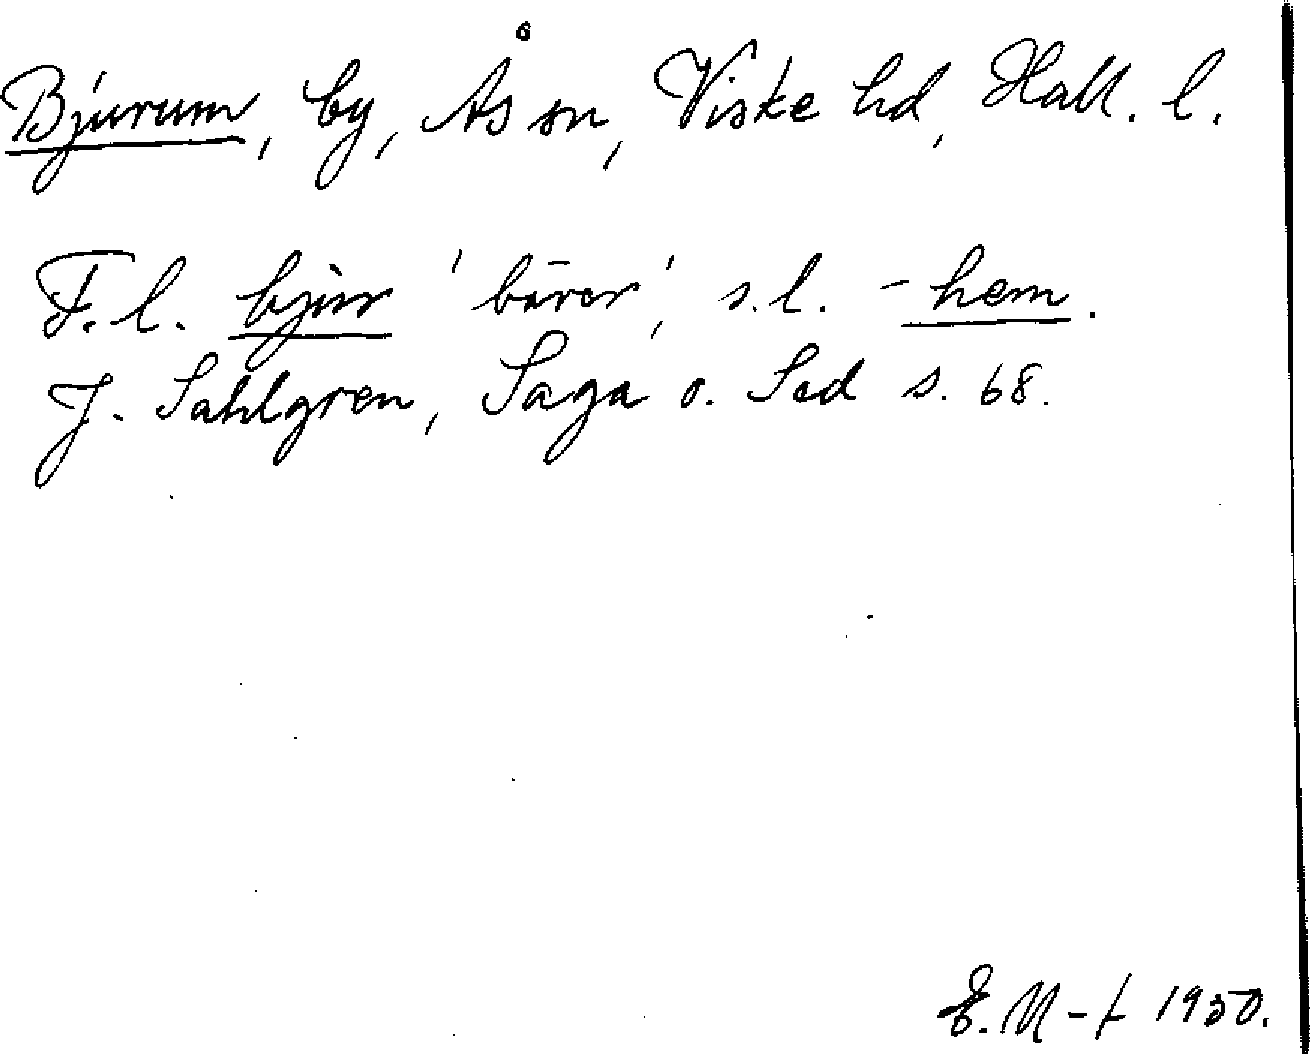 Bjurum, by, Ås sn, Viske hd, Hall. l.
F. l. bjur 'bäver', s. l. -hem.
J. Sahlgren, Saga o. Sed s. 68.
E. M-t 1930.